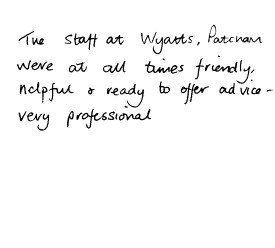 The staff at Wyatts, Patcham
were at all times friendly,
helpful & ready to offer advice -
very professional